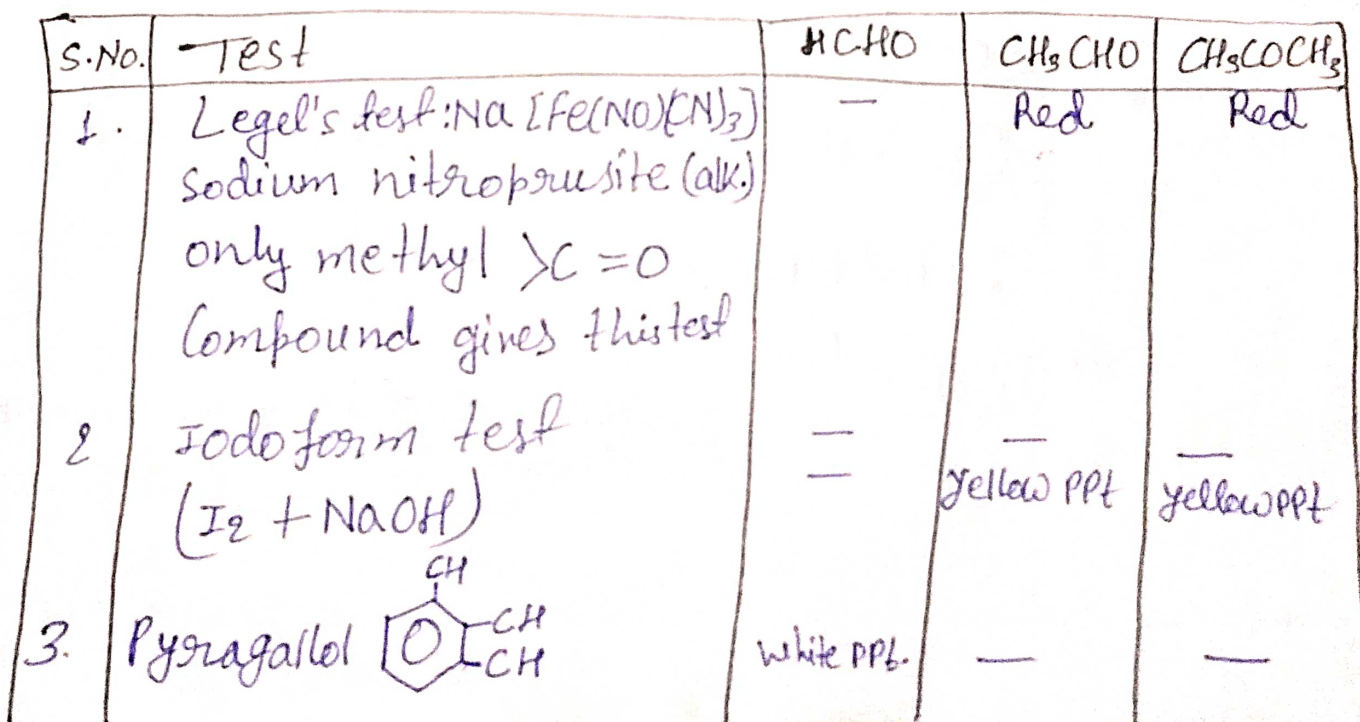 S.No. Test HCHO CH3CHO CH3COCH3
1. Legel's test:Na [Fe(NO)(CN)3] — Red Red
Sodium nitroprusite (alk.)
only methyl >C=O
Compound gives this test
2 Iodoform test — — —
(I2 + NaOH) — yellow ppt yellow ppt
CH
3. Pyragallol CH White ppt. — —
CH